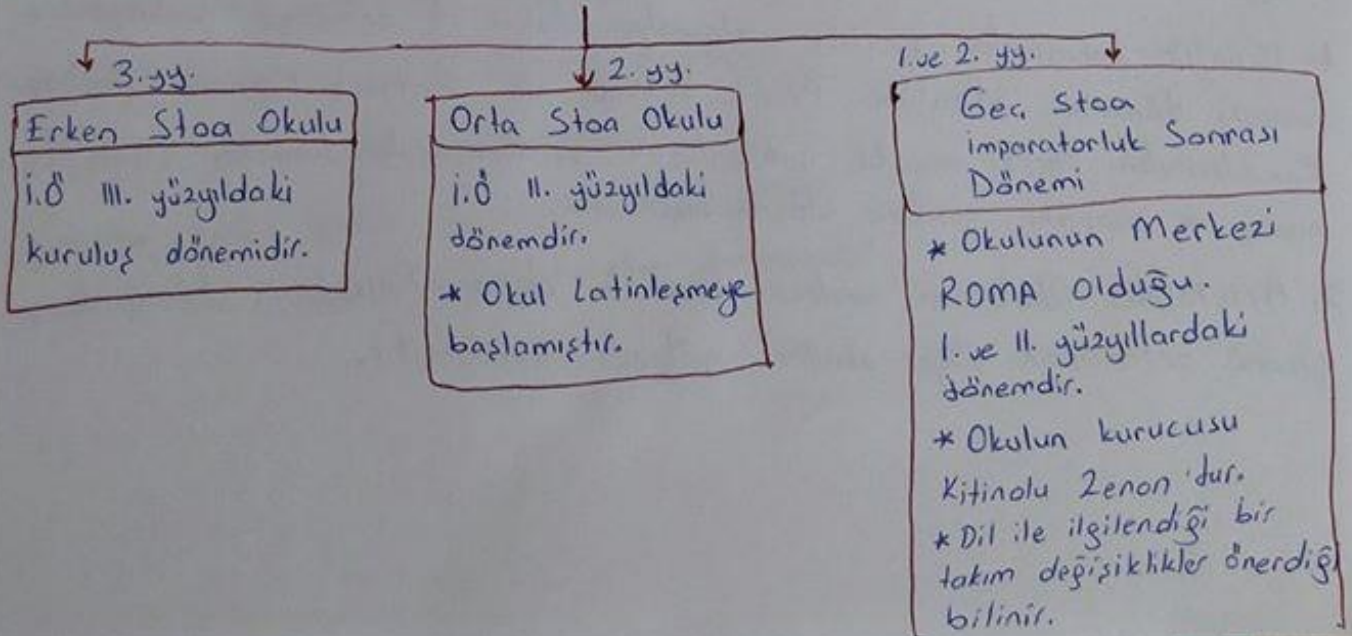 3. yy.
Erken Stoa Okulu
İ.Ö III. yüzyıldaki
kuruluş dönemidir.
2. yy.
Orta Stoa Okulu
İ.Ö II. yüzyıldaki
dönemdir.
* Okul Latinleşmeye
başlamıştır.
1. ve 2. yy.
Geç Stoa
imparatorluk Sonrası
Dönemi
* Okulunun Merkezi
ROMA Olduğu.
I. ve II. yüzyıllardaki
dönemdir.
* Okulun kurucusu
Kitinolu Zenon'dur.
* Dil ile ilgilendiği bir
takım değişiklikler önerdiği
bilinir.